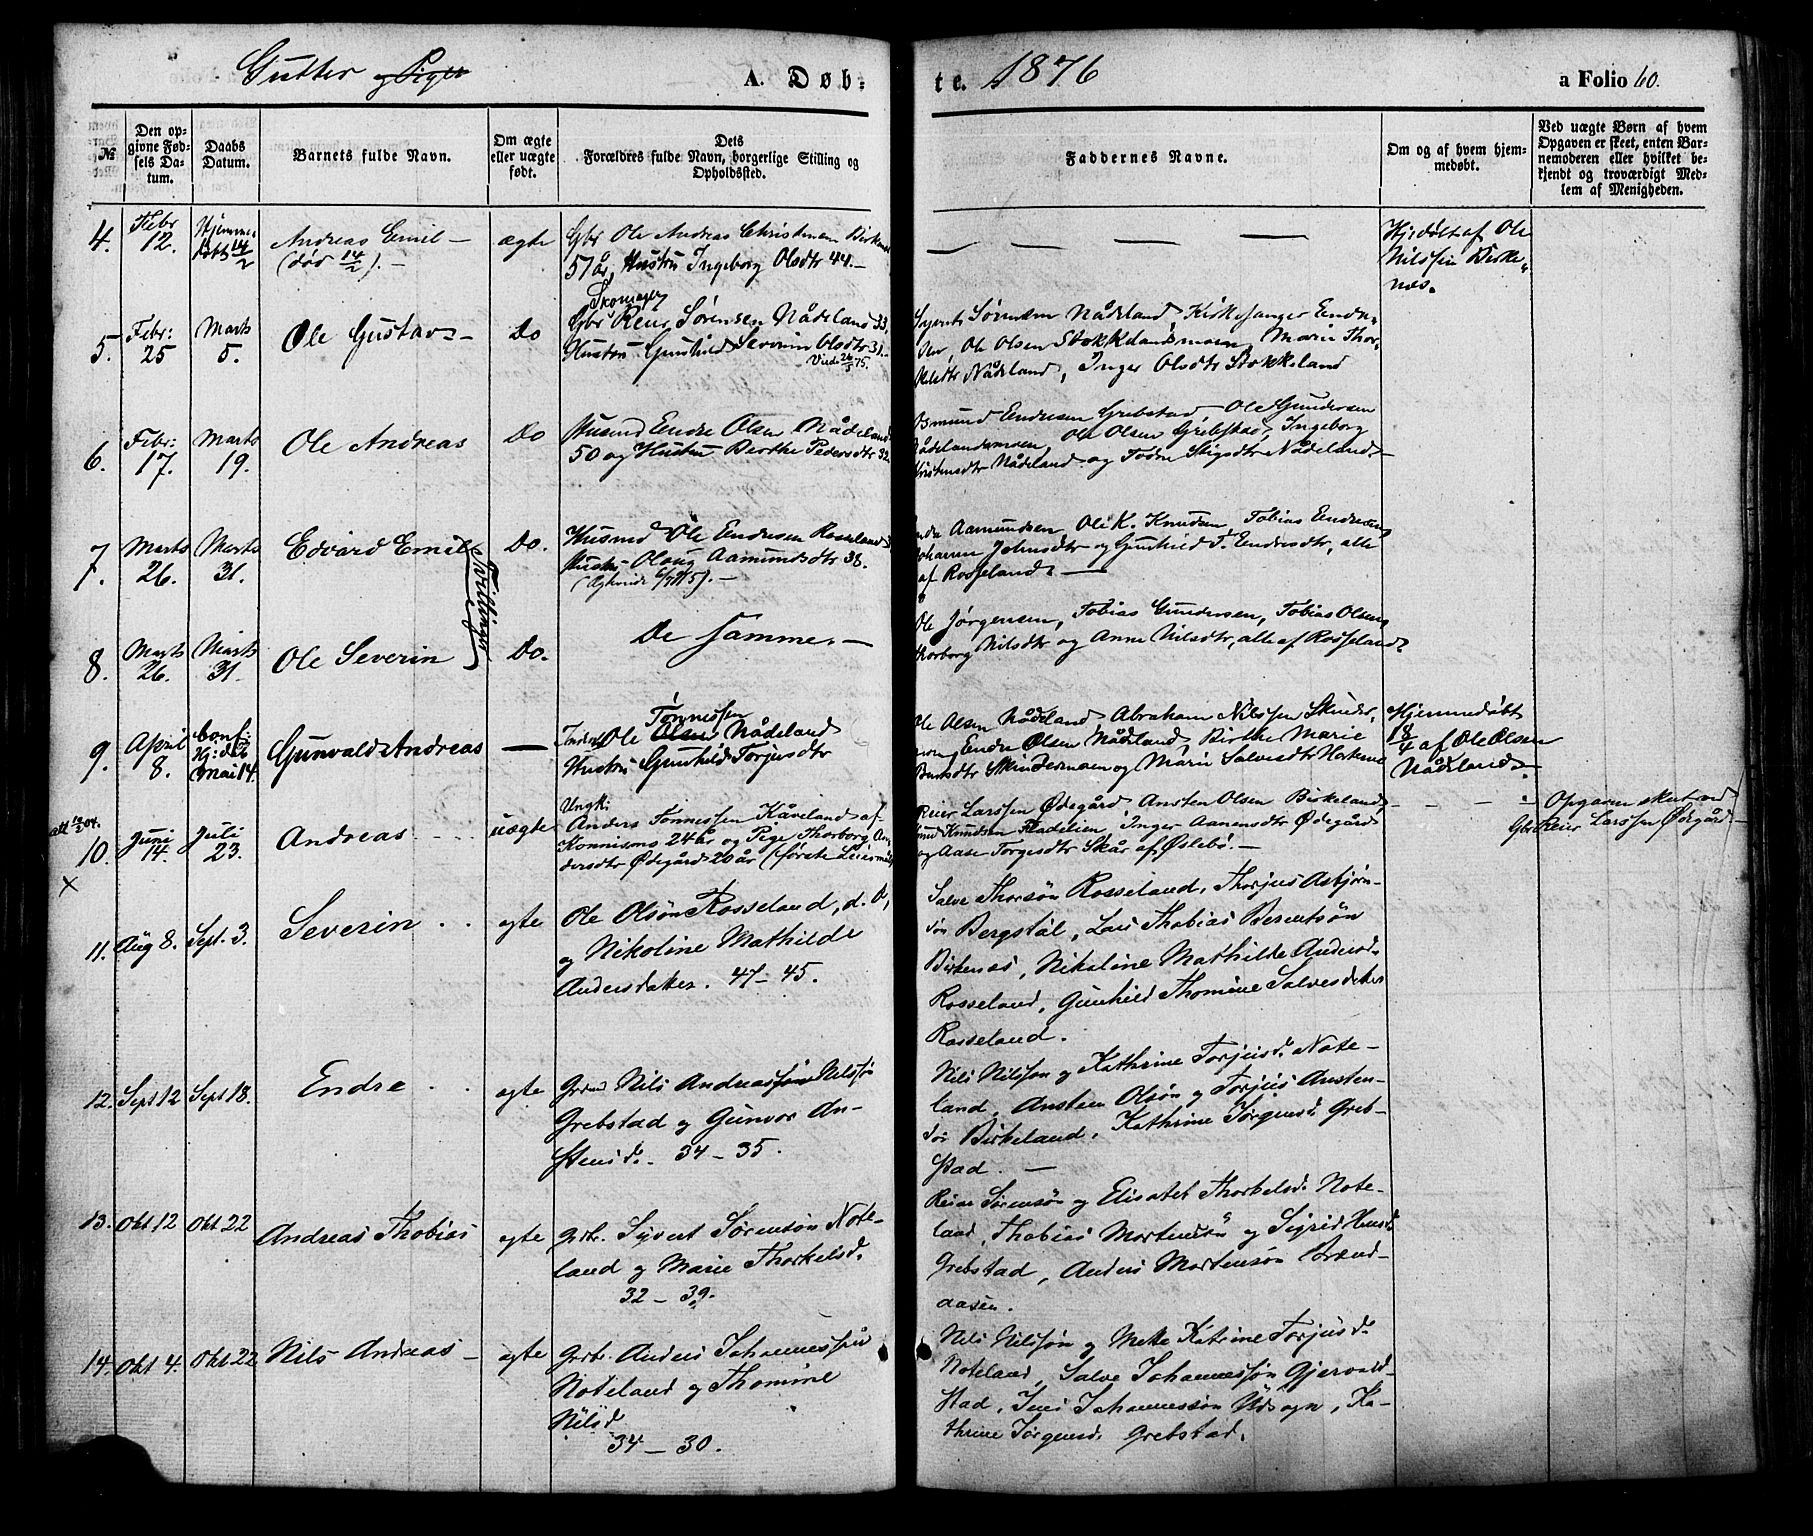 Gutter og Piger
A. Døb-
te. 1876
a Folio 60.
№
Den op-
givne Fød-
sels Da-
tum.
Daabs
Datum.
Barnets fulde Navn.
Om ægte
eller uægte
født.
Dets
Forældres fulde Navn, borgerlige Stilling og
Opholdssted.
Faddernes Navne.
Om og af hvem hjem-
medøbt.
Ved uægte Børn af hvem
Opgaven er skeet, enten Bar-
nemoderen eller hvilket be-
kjendt og troværdigt Med-
lem af Menigheden.
4.
Febr
12.
Hjemme
døbt 14/2
Andreas Emil –
(død 14/2). –
ægte
Gbr Ole Andreas Christensen Birkenæs
57 år, Hustru Ingeborg Olsdtr 44. –
— — — —
Hj. døbt af Ole
Nilssen Birke-
næs.
5.
Febr:
25
Marts
5.
Ole Gustav –
Do
Skomager
Gbr Reier Sørensen Nådeland 33,
Hustru Gunhild Severine Olsdtr 31. –
Viede 26/3 75.
Syvert Sørensen Nådeland, Kirkesanger Endre-
sen, Ole Olsen Stokkelandsmoen, Marie Thor-
keldtr Nådeland, Inger Olsdtr Stokkeland
6.
Febr:
17.
Marts
19.
Ole Andreas
Do
Husmd Endre Olsen Nådeland
50 og Hustru Berthe Pedersdtr 32.
Asmund Endresen Grebstad, Ole Gundersen
Nådelandsmoen, Ole Olsen Grebstad, Ingeborg
Kristensdtr Nådeland og Todne Stigsdtr Nådeland. –
7.
Marts
26.
Marts
31.
Edvard Emil
Tvillinger
Do.
Husmd Ole Endresen Rosseland
Hustru Olaug Aamundsdtr 38.
Endre Aamundsen, Ole K. Knudsen, Tobias Endresen,
Johanne Johnsdtr og Gunhild T. Endresdtr, alle
af Rosseland. —
8.
Marts
26.
Marts
31.
Ole Severin
Do.
De samme. –
Ole Jørgensen, Tobias Gundersen, Tobias Olsen,
Thorborg Nilsdtr og Anne Nilsdtr, alle af Rosseland.
9.
April
8.
Conf:
Hj: døbt
Mai 14.
Gunvald Andreas
—
Tønnessen
Ole Olsen Nådeland
Hustru Gunhild Torjusdtr
Ole Olsen Nådeland, Abraham Nilssen Skinder-
moen, Endre Olsen Nådeland, Birthe Marie
Skindermoen og Marie Salvesdtr
Hjemmedøbt
18/4 af Ole Olsen
Nådeland.
10.
×
Juni
14.
Juli
23.
Andreas
uægte
Ungk:
Anders Tønnessen Kåveland af
24 år og Pige Thorborg An-
dersdtr Ødegård 20 år (første Leiermål)
Reier Larssen Ødegård, Ansten Olsen Birkeland
Knud Knudsen Fladelien, Inger Aanensdtr Ødegård
og Aase Torgesdtr Skår af Øslebø. –
— — —
Opgaven skeet ved
Gbr Reier Larssen Ødegård –
11.
Aug 8.
Sept. 3.
Severin
ægte
Ole Olsøn Rosseland, d. O,
og Nikoline Mathilde
Andersdatter. 47–45.
Salve Thorsøn Rosseland, Thorjus Asbjørn-
søn Bergstøl, Lars Thobias Berentsøn
Birkenæs, Nikoline Mathilde Andersd.
Rosseland, Gunhild Thomine Salvesdatter
Rosseland.
12.
Sept 12
Sept 18.
Endre
ægte
Grmd Nils Andreassøn Nilssø
Grebstad og Gunvor An-
stensd. 34–35.
Nils Nilsson og Kathrine Torjusd. Note-
land, Ansten Olsøn og Torjus Ansten-
søn Birkeland, Kathrine Jørgensd. Greb-
stad. —
13.
Okt 12
Okt 22
Andreas Thobias
ægte
Grbr. Syvert Sørensøn Note-
land og Marie Thorkelsd.
32–39.
Reier Sørensøn og Elisabet Thorkelsd. Note-
land, Thobias Mortensøn og Sigrid
Grebstad, Anders Mortensøn Brænd-
aasen.
14.
Okt 4.
Okt 22
Nils Andreas –
ægte
Grbr. Anders Johannessøn
Noteland og Thomine
Nilsd.
34–30.
Nils Nilssøn og Mette Katrine Torjusd.
Noteland, Salve Johannessøn Gjervold-
stad, Jens Johannessøn Udsogn, Ka-
thrine Jørgensd. Grebstad.